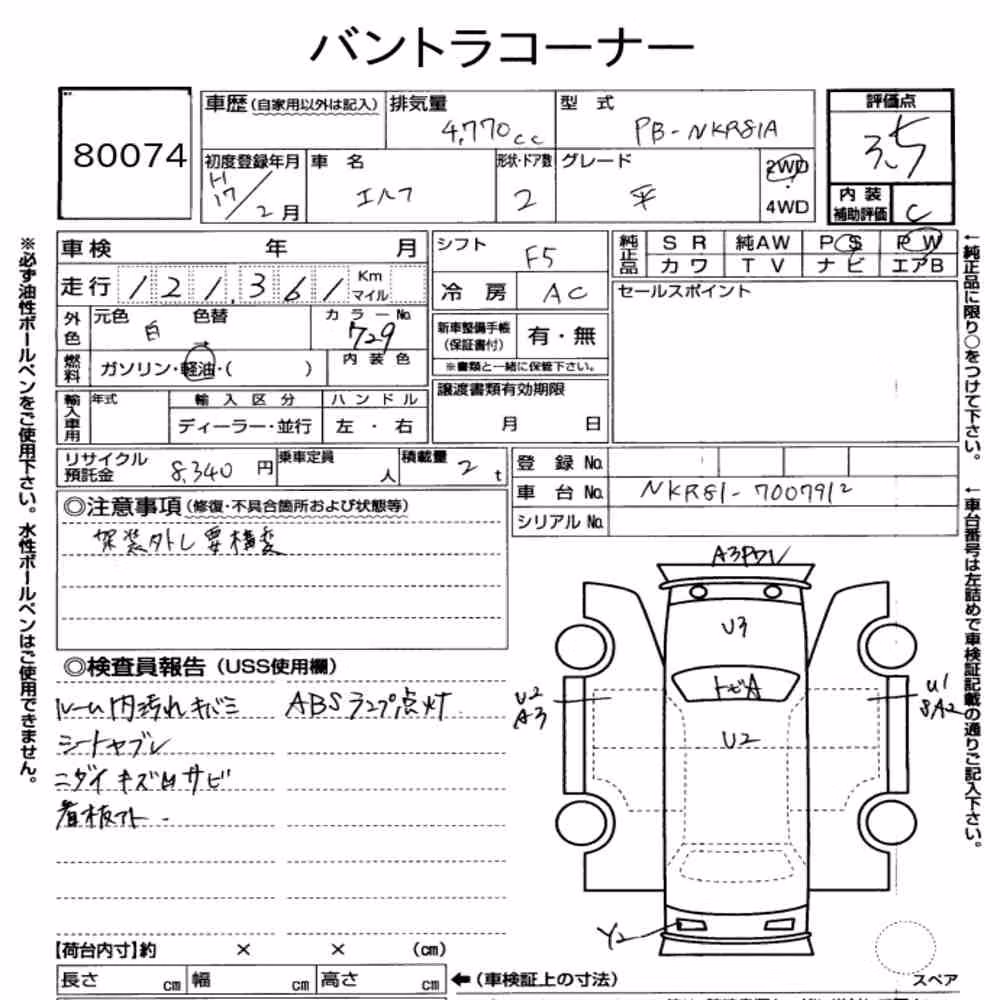 バントラコーナー
80074
車歴(自家用以外は記入)
排気量
4,770cc
型 式
PB-NKR81A
評価点
3.5
初度登録年月
H17/2月
車 名
エルフ
形状・ドア数
2
グレード
平
2WD
4WD
内 装
補助評価
C
車 検 年 月
走行 121,361 Km
マイル
外色
元色 白
色替 →
カラーNo.
729
燃料
ガソリン・軽油・( )
内 装 色
輸入車用
年式
輸 入 区 分
ディーラー・並行
ハ ン ド ル
左 ・ 右
シフト
F5
冷 房
AC
新車整備手帳
(保証書付)
有・無
※書類と一緒に保管下さい。
譲渡書類有効期限
月 日
純正品
S R 純AW P S P W
カ ワ T V ナ ビ エアB
セールスポイント
リサイクル
預託金
8,340 円
乗車定員
人
積載量
2 t
登 録 No.
車 台 No.
NKR81-7007912
シリアル No.
◎注意事項(修復・不具合箇所および状態等)
架装外し要構変
◎検査員報告(USS使用欄)
ルーム内汚れキバミ
シートヤブレ
ニダイキズ凹サビ
看板アト
ABSランプ点灯
A3Pワレ
U3
トビA
U2
U2
A3
U1
SA2
Y2
スペア
【荷台内寸】約 × × (cm)
長さ cm
幅 cm
高さ cm
←(車検証上の寸法)
※必ず油性ボールペンをご使用下さい。水性ボールペンはご使用できません。
←純正品に限り○をつけて下さい。
←車台番号は左詰めで車検証記載の通りご記入下さい。